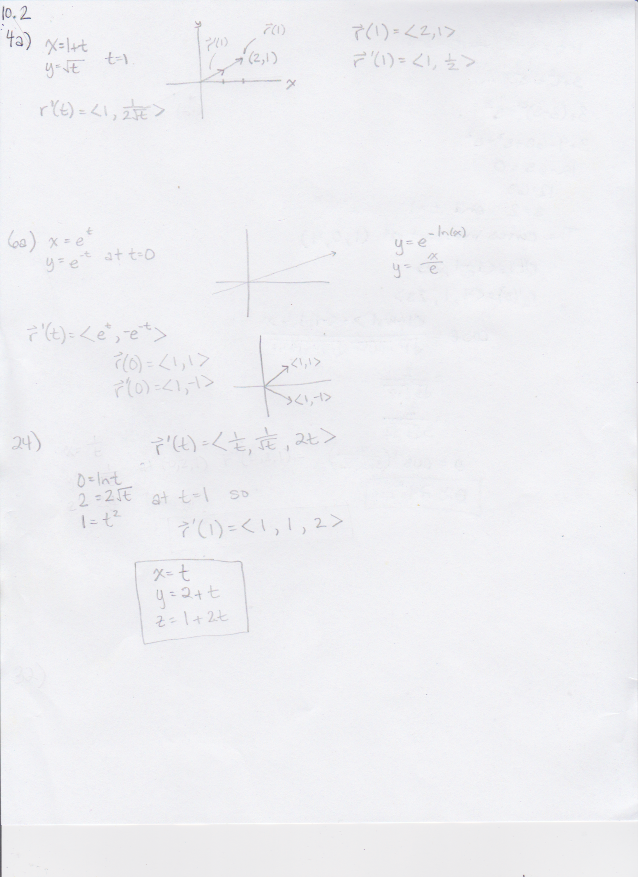 10.2
4a) x=1+t
y=√t t=1
r⃗'(1) r⃗(1)
(2,1)
y
x
r⃗(1)=<2,1>
r⃗'(1)=<1, 1/2>
r'(t)=<1, 1/(2√t)>
6a) x=e^t
y=e^-t at t=0
y=e^-ln(x)
y=x/e
r⃗'(t)=<e^t, -e^-t>
r⃗(0)=<1,1>
r⃗'(0)=<1,-1>
<1,1>
<1,-1>
24) r⃗'(t)=<1/t, 1/√t, 2t>
0=lnt
2=2√t at t=1 so
1=t²
r⃗'(1)=<1, 1, 2>
x=t
y=2+t
z=1+2t